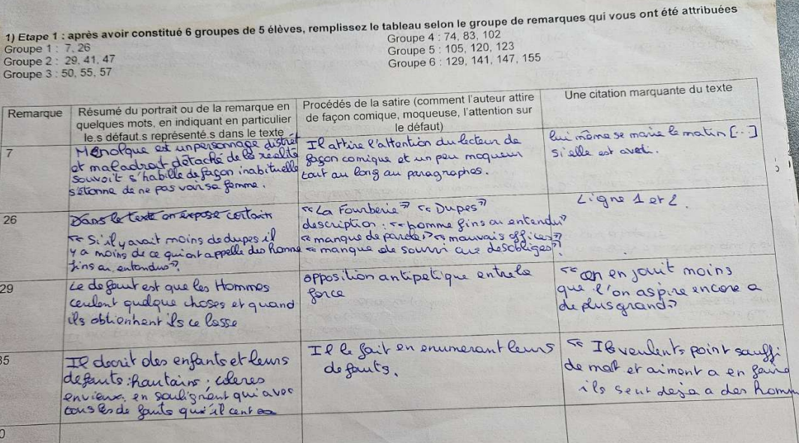 1) Etape 1 : après avoir constitué 6 groupes de 5 élèves, remplissez le tableau selon le groupe de remarques qui vous ont été attribuées
Groupe 1 : 7, 26
Groupe 2 : 29, 41, 47
Groupe 3 : 50, 55, 57
Groupe 4 : 74, 83, 102
Groupe 5 : 105, 120, 123
Groupe 6 : 129, 141, 147, 155
Remarque
Résumé du portrait ou de la remarque en
quelques mots, en indiquant en particulier
le.s défaut.s représenté.s dans le texte
Procédés de la satire (comment l'auteur attire
de façon comique, moqueuse, l'attention sur
le défaut)
Une citation marquante du texte
7
Ménalque est un personnage distrait
et maladroit détaché de la réalité
souvoit s'habille de façon inabituelle
s'étonne de ne pas voir sa femme.
Il attire l'attention du lecteur de
façon comique et un peu moqueur
tout au long au paragraphes.
lui même se marie le matin [...]
si elle est
26
Dans le texte on expose certain
"Si il y avait moins de dupes il
y a moins de ce qui ont appelle des Homme
fins ou entendus"
"La Fourberie" "Dupes"
description : "homme fins ou entendu"
"manque de parole" "mauvais offices"
"manque de
Ligne 1 et 2.
29
Le defaut est que les Hommes
veulent quelque choses et quand
ils obtienhent ils ce lasse
opposition entre la
force
"on en jouit moins
que l'on aspire encore a
de plus grand"
35
Il decrit des enfants et leurs
defauts : hautains ; coleres
envieux, en soulignent qui avec
tous les de fauts qu'il
Il le fait en enumerant leurs
defauts.
"Ils veulents point souffri
de mal et aiment a en faire
ils sent deja a des homm
0